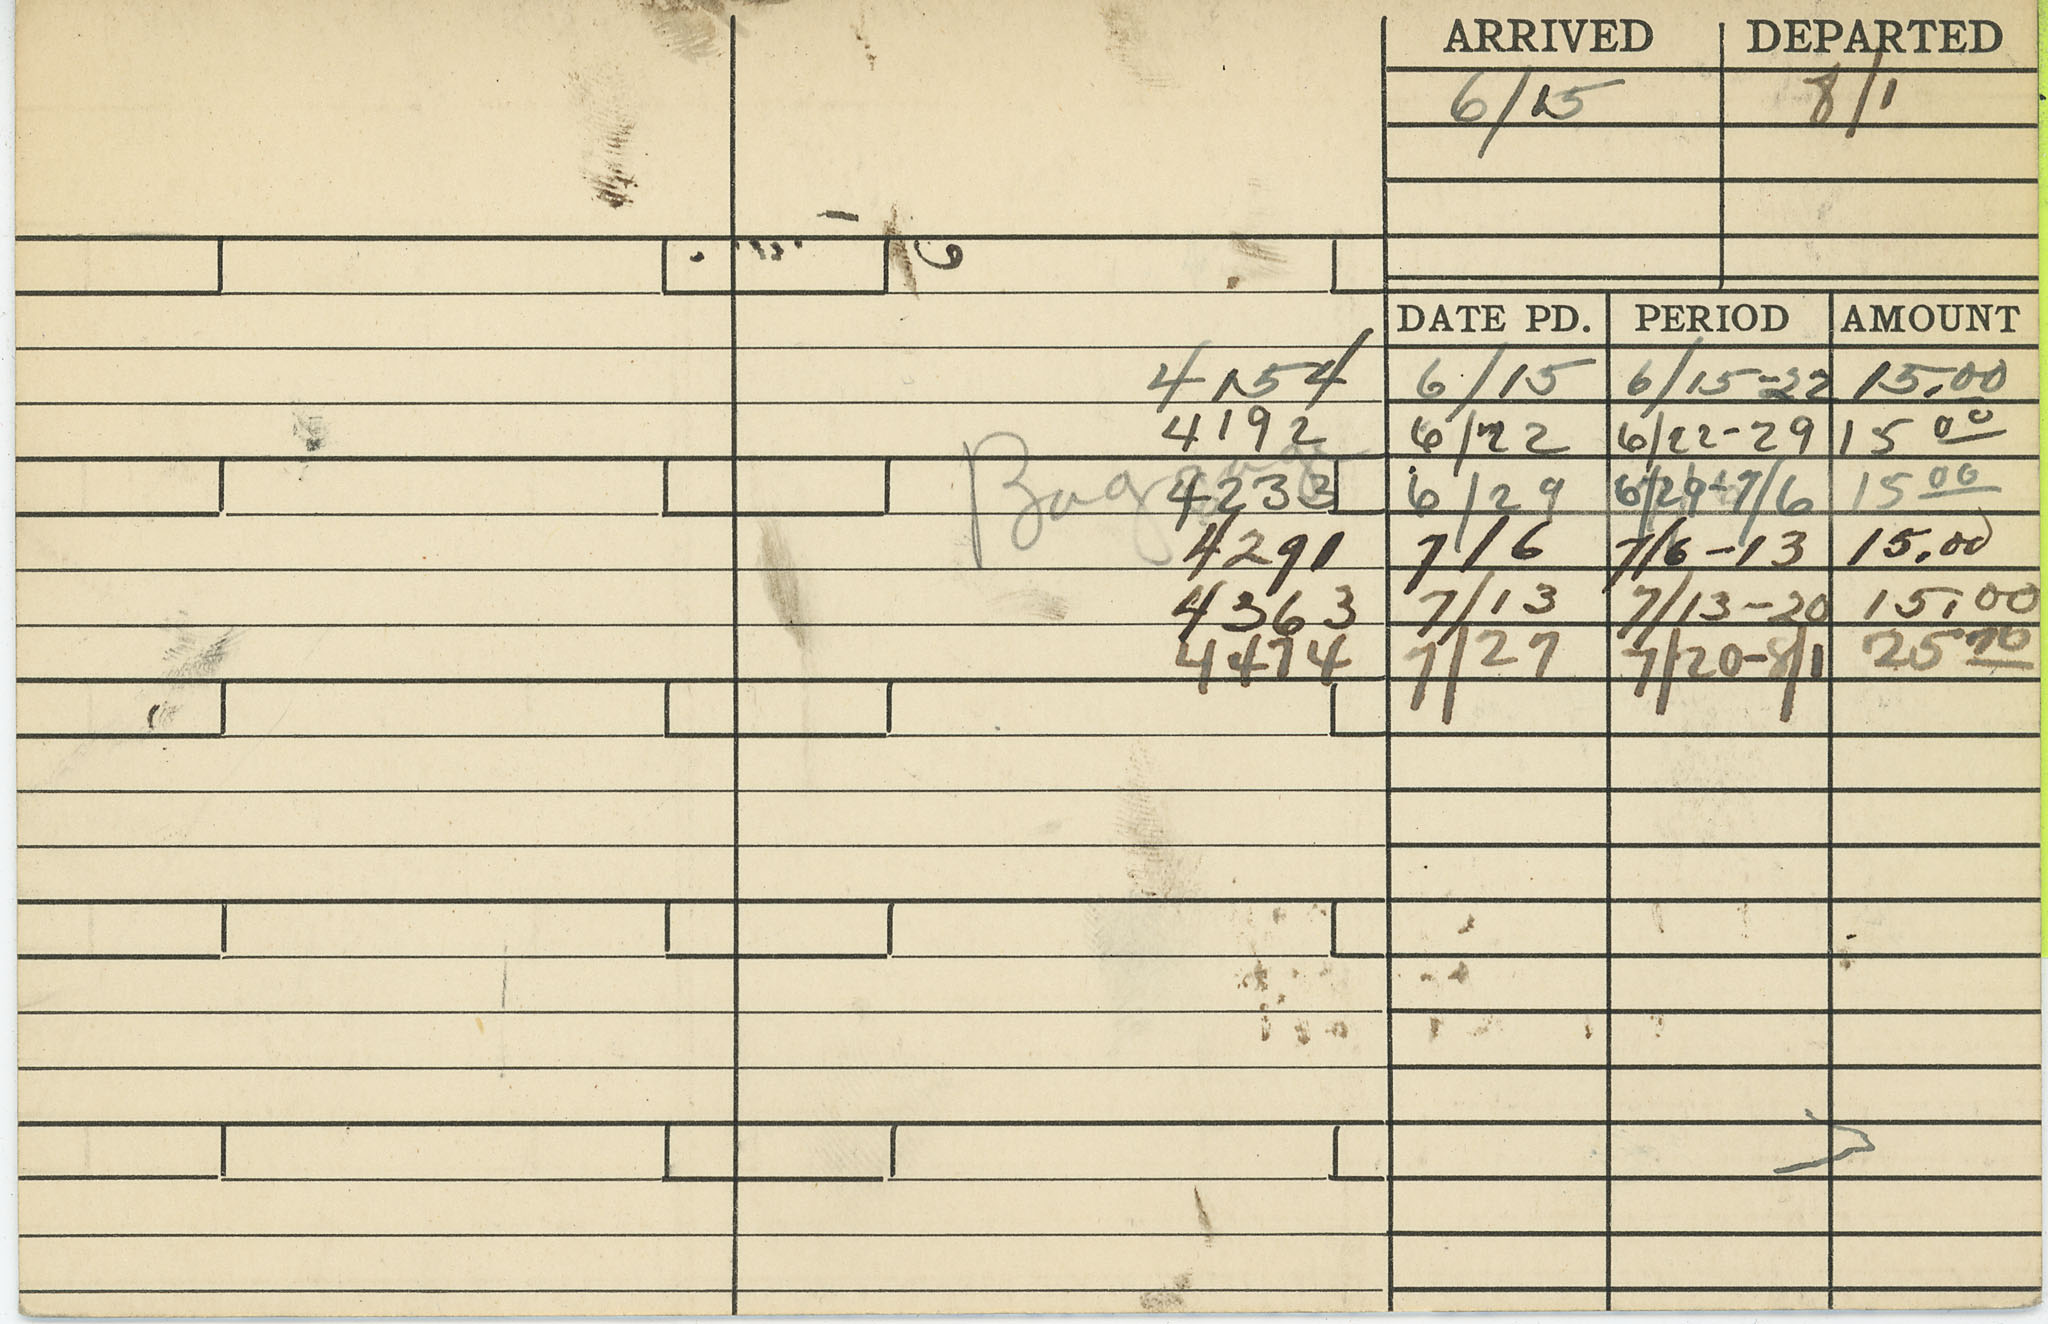 ARRIVED DEPARTED
6/15 8/1
DATE PD. PERIOD AMOUNT
4154 6/15 6/15-22 15.00
4192 6/22 6/22-29 15 00
Baggage
4233 6/29 6/29-7/6 15 00
4291 7/6 7/6-13 15.00
4363 7/13 7/13-20 15.00
4474 7/27 7/20-8/1 25 70